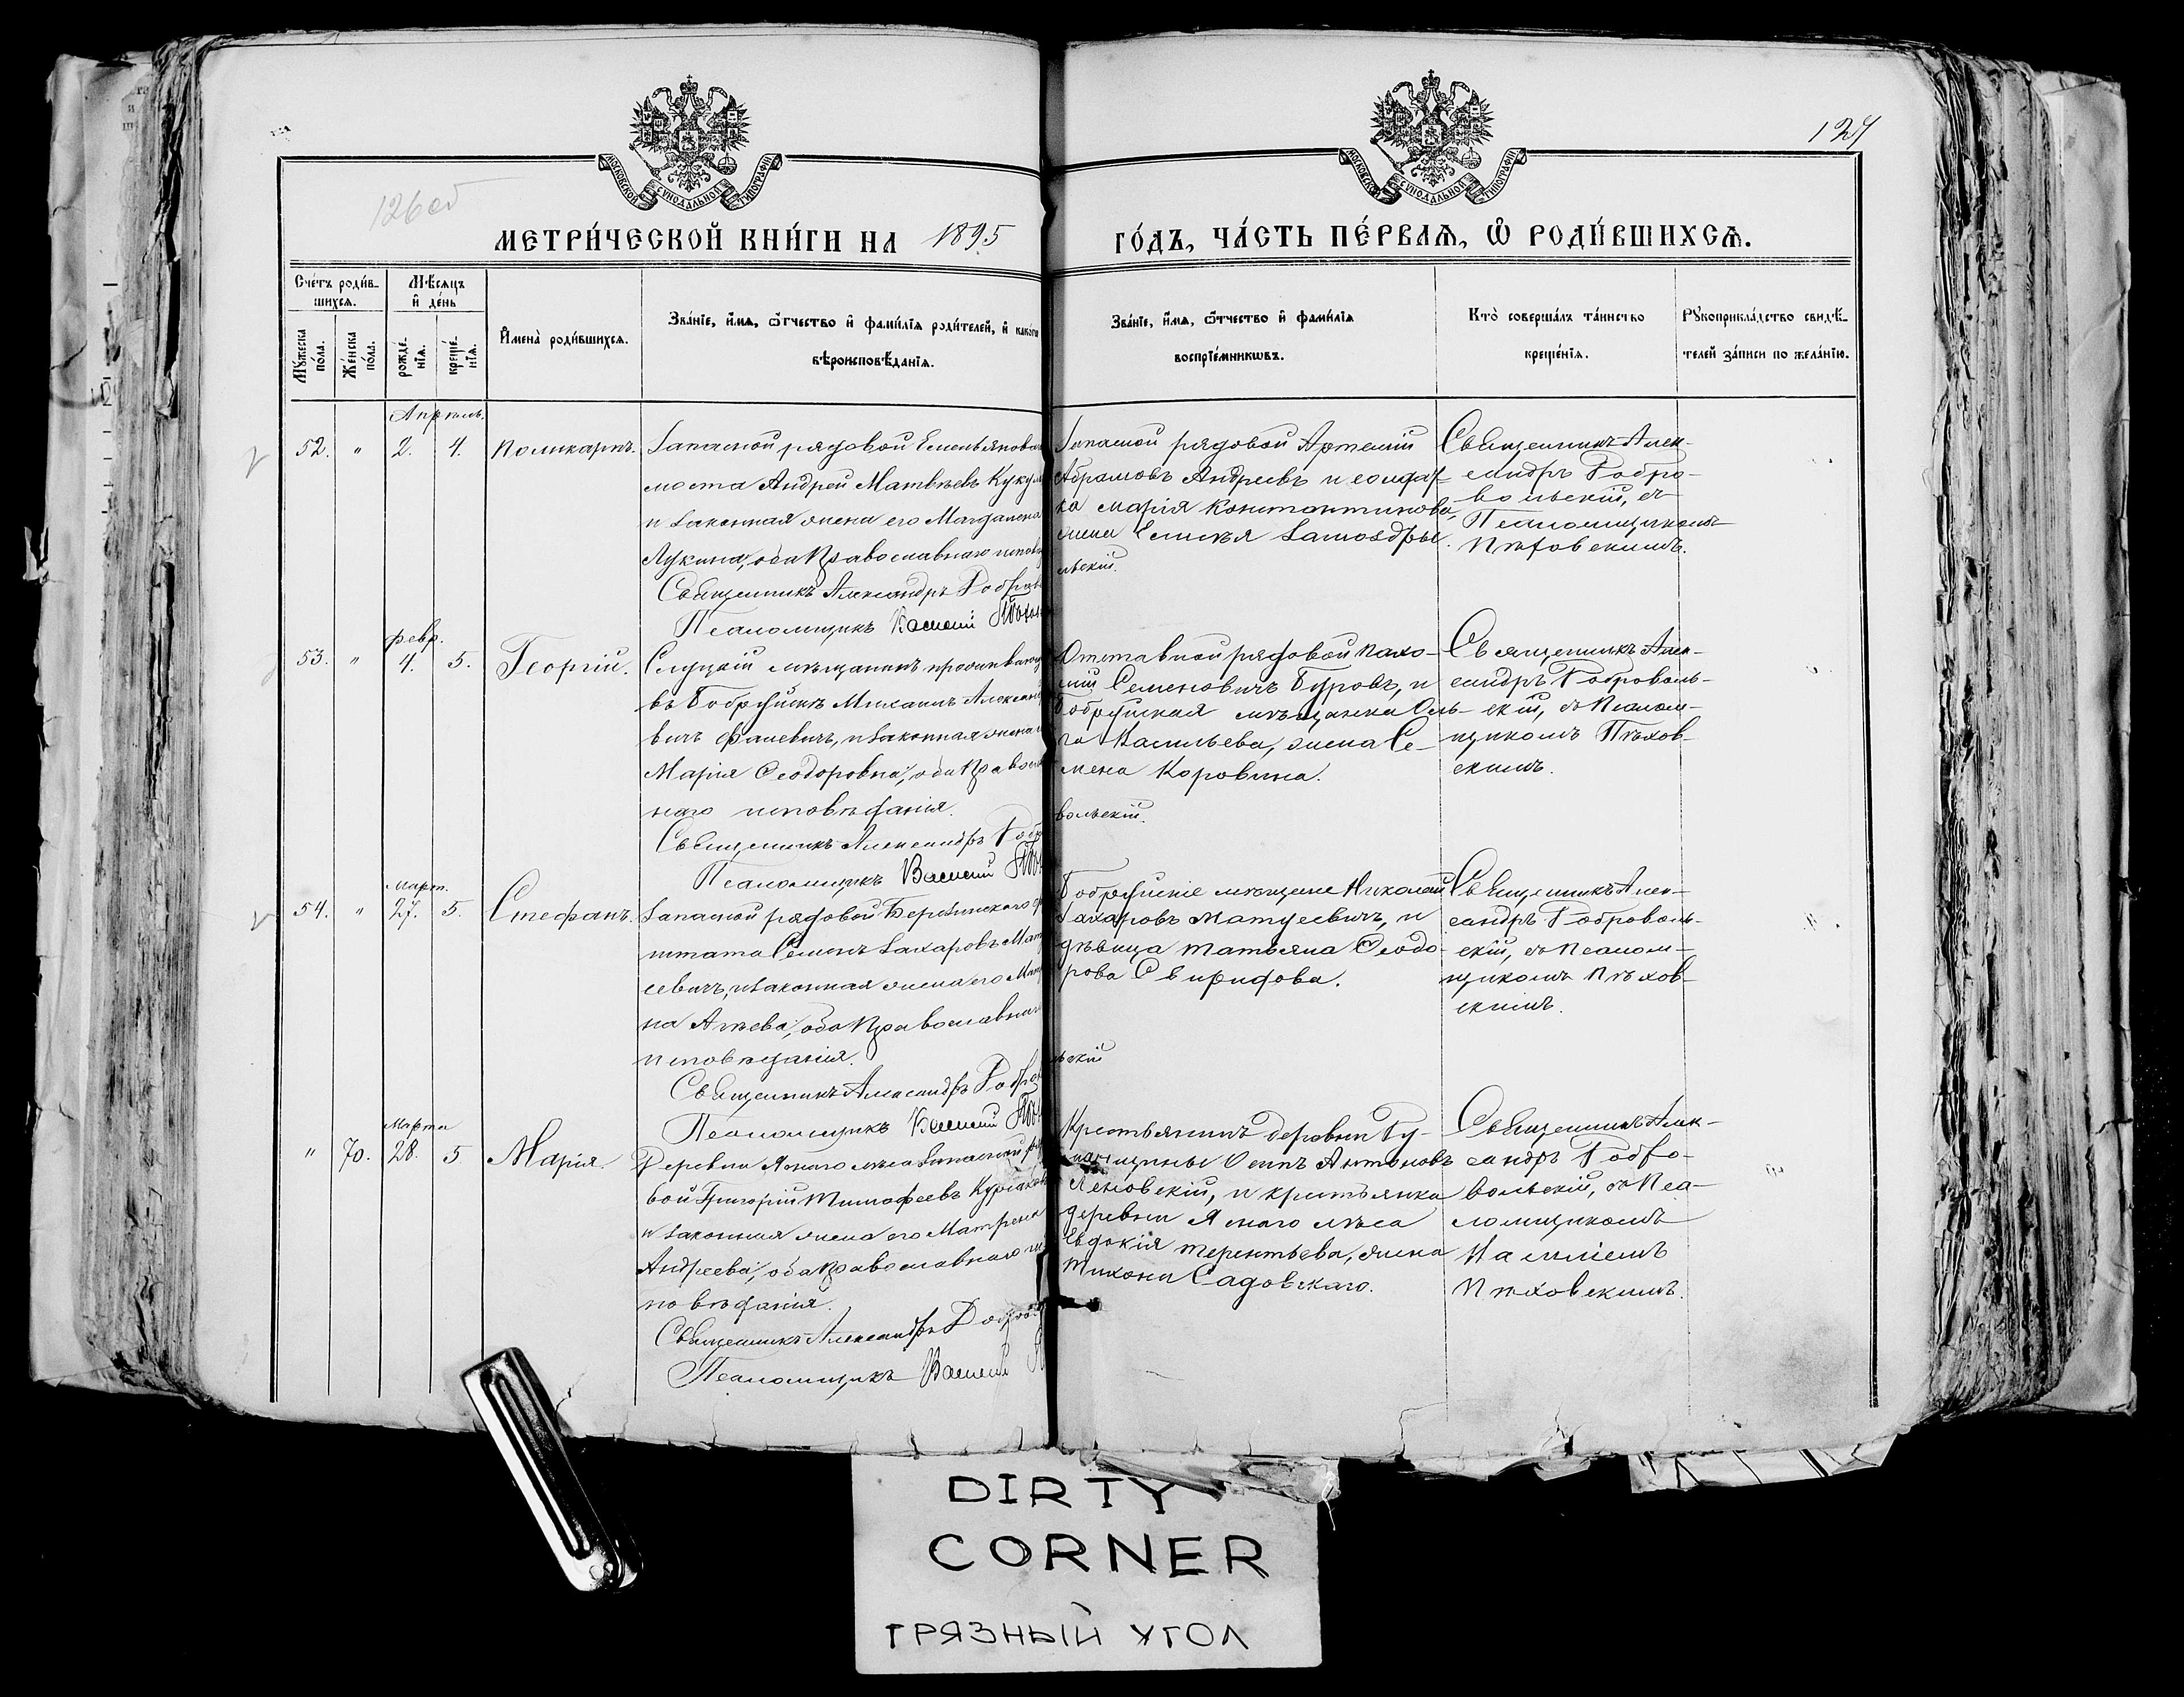 127
126об
МОСКОВСКОЙ СѴНОДАЛЬНОЙ ТИПОГРАФІИ
МОСКОВСКОЙ СѴНОДАЛЬНОЙ ТИПОГРАФІИ
МЕТРИ́ЧЕСКОЙ КНИ́ГИ НА 1895
ГО́ДЪ, ЧА́СТЬ ПЕ́РВАѦ, Ѡ҆ РОДИ́ВШИХСѦ.
Сче́тъ роди́в-
шихсѧ.
Мѣ́сѧцъ
и҆ де́нь
Мꙋ́жеска
по́ла.
Же́нска
по́ла.
рожде́-
нїѧ.
креще́-
нїѧ.
И҆мена̀ роди́вшихсѧ.
Зва́нїе, и҆́мѧ, ѻ҆́тчество и҆ фами́лїѧ роди́телей, и҆ како́гѡ
вѣроисповѣ́данїѧ.
Зва́нїе, и҆́мѧ, ѻ҆́тчество и҆ фами́лїѧ
воспрїе́мникѡвъ.
Кто̀ соверша́лъ та́инство
креще́нїѧ.
Рꙋкоприкла́дство свидѣ́-
телей за́писи по жела́нїю.
Апрѣль.
52. " 2. 4. Поликарпъ.
Запасной рядовой Емельянова
моста Андрей Матвѣевъ Кукул
и законная жена его Магдалена
Лукина, оба Православнаго
Священникъ Александръ Добров
Псаломщикъ Василій Пѣхов
Запасной рядовой Артемій
Абрамовъ Андреевъ и солдат-
ка Марія Константинова,
жена
льскій.
Священникъ Алек-
сандръ Добро-
вольскій, съ
Псаломщикомъ
Пѣховскимъ.
февр.
53. " 4. 5. Георгій.
Слуцкій мѣщанинъ проживающ
въ Бобруйскѣ Михаилъ Александ
вичъ Фалевичъ, и законная жена
Марія Ѳеодоровна, оба Правосл
наго исповѣданія.
Священникъ Александръ Добр
Псаломщикъ Василій Пѣх
Отставной рядовой Пахо-
мій Семеновичъ Бобровъ, и
Бобруйская мѣщанка Оль-
га Васильева, жена Се-
мена Коровина.
вольскій.
Священникъ Алек-
сандръ Доброволь-
скій, съ Псалом-
щикомъ Пѣхов-
скимъ.
Март.
54. " 27. 5. Стефанъ.
Запасной рядовой Березинского ф
штата Семенъ Захаровъ Мат
севичъ, и законная жена его Мат
на Агѣева, оба Православнаго
исповѣданія.
Священникъ Александръ Добро
Псаломщикъ Василій Пѣх
Бобруйскіе мѣщане Николай
Захаровъ Матусевичъ, и
дѣвица Татьяна Ѳеодо-
рова Свиридова.
льскій
Священникъ Алек-
сандръ Доброволь-
скій, съ Псалом-
щикомъ Пѣхов-
скимъ.
Марта
" 70. 28. 5 Марія.
Деревни Яснаго лѣса Запасной ря
вой Григорій Тимофеевъ
и законная жена его Матрена
Андреева, оба Православнаго ис
повѣданія.
Священникъ Александръ Добров
Псаломщикъ Василій П
Крестьянинъ деревни
Осипъ Антоновъ
и крестьянка
деревни Яснаго лѣса
Евдокія Терентьева, жена
Тихона Садовскаго.
Священникъ Алек-
сандръ Добро-
вольскій, съ Пса-
ломщикомъ
Василіемъ
Пѣховскимъ.
DIRTY
CORNER
ГРЯЗНЫЙ УГОЛ